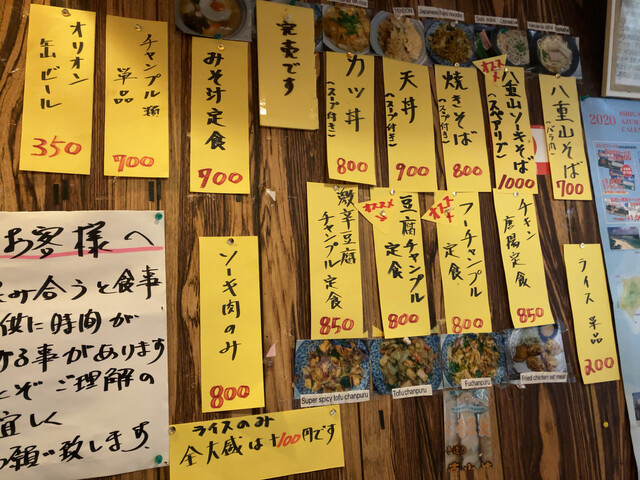 オリオン
缶ビール
350
チャンプル類
単品
700
みそ汁定食
700
完売です
カツ丼
(スープ付き)
800
天丼
(スープ付き)
900
焼きそば
(スープ付き)
800
オススメ
八重山ソーキそば
(スペアリブ)
1000
八重山そば
(バラ肉)
700
Japanese fried noodle
2020
お客様へ
み合うと食事
供に時間が
ける事があります
どうぞご理解の
宜しく
お願い致します.
ソーキ肉のみ
800
激辛豆腐
チャンプル定食
850
オススメ
豆腐チャンプル
定食
800
オススメ
フーチャンプル
定食
800
チキン
唐揚定食
850
ライス 単品
200
Super spicy tofu chanpuru
Tofu chanpuru
Fuchanpuru
Fried chicken set meal
ライスのみ
全大盛は+100円です